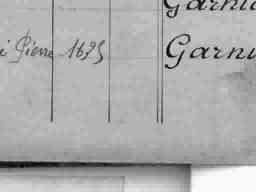 Garni
i Pierre 1695 Garni